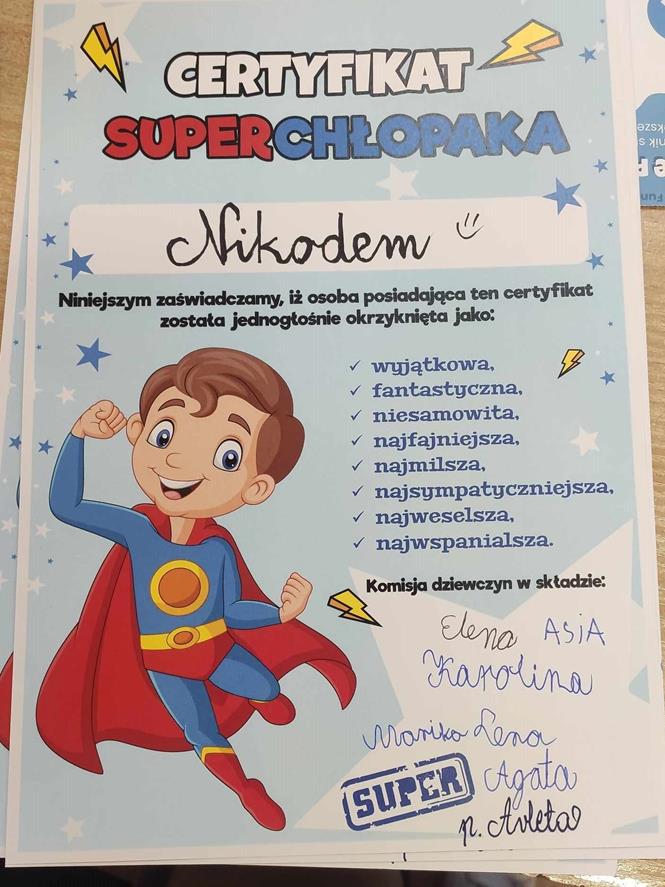 CERTYFIKAT
SUPERCHŁOPAKA
Nikodem
Niniejszym zaświadczamy, iż osoba posiadająca ten certyfikat
została jednogłośnie okrzyknięta jako:
✓ wyjątkowa,
✓ fantastyczna,
✓ niesamowita,
✓ najfajniejsza,
✓ najmilsza,
✓ najsympatyczniejsza,
✓ najweselsza,
✓ najwspanialsza.
Komisja dziewczyn w składzie:
Elena ASiA
Karolina
Lena
SUPER Agata
p.